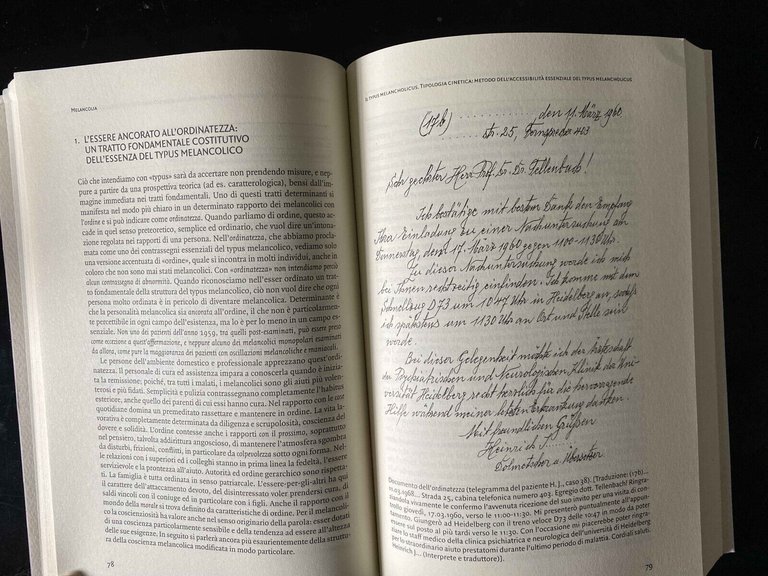 MELANCOLIA
1. L'ESSERE ANCORATO ALL'ORDINATEZZA:
UN TRATTO FONDAMENTALE COSTITUTIVO
DELL'ESSENZA DEL TYPUS MELANCOLICO
Ciò che intendiamo con «typus» sarà da accertare non prendendo misure, e nep-
pure a partire da una prospettiva teorica (ad es. caratterologica), bensì dall'im-
magine immediata nei tratti fondamentali. Uno di questi tratti determinanti si
manifesta nel modo più chiaro in un determinato rapporto dei melancolici con
l'ordine e si può indicare come ordinatezza. Quando parliamo di ordine, questo ac-
cade in quel senso proteiforme, semplice ed ordinario, che vuol dire un'inton-
azione regolata nei rapporti di una persona. Nell'ordinatezza, che abbiamo procla-
mata come uno dei contrassegni essenziali del typus melancolico, vediamo solo
una versione accentuata di «ordine», quale si incontra in molti individui, anche in
coloro che non sono mai stati melancolici. Con «ordinatezza» non intendiamo perciò
alcun contrassegno di abnormità. Quando riconosciamo nell'esser ordinato un trat-
to fondamentale della struttura del typus melancolico, ciò non vuol dire che ogni
persona molto ordinata è in pericolo di diventare melancolica. Determinante è
che la personalità melancolica sia ancorata all'ordine, il che non è particolarmen-
te percettibile in ogni campo dell'esistenza, ma lo è per lo meno in un campo es-
senziale. Non uno dei pazienti dell'anno 1959, tra quelli post-esaminati, può essere preso
come eccezione a quest'affermazione, e neppure alcuno dei melancolici monopolari esaminati
da allora, come pure la maggioranza dei pazienti con oscillazioni melancoliche e maniacali.
Le persone dell'ambiente domestico e professionale apprezzano quest'ordi-
natezza. Il personale di cura ed assistenza impara a conoscerla quando è inizia-
ta la remissione; poiché, tra tutti i malati, i melancolici sono gli aiuti più volen-
terosi e più fidati. Semplicità e pulizia contrassegnano completamente l'habitus
esteriore, anche quello dei parenti di cui essi hanno cura. Nel rapporto con le cose
quotidiane domina un premeditato rassettare e mantenere in ordine. La vita la-
vorativa è completamente determinata da diligenza e scrupolosità, coscienza del
dovere e solidità. L'ordine contesse anche i rapporti con il prossimo, soprattutto
nel pensiero, talvolta addirittura angoscioso, di mantenere l'atmosfera sgombra
da disturbi, frizioni, conflitti, in particolare da colpevolezza sotto ogni forma. Nel-
le relazioni con i superiori ed i colleghi stanno in prima linea la fedeltà, l'essere
servizievole e la prontezza all'aiuto. Autorità ed ordine gerarchico sono rispetta-
ti. La famiglia è tutta ordinata in senso patriarcale. L'essere-per-gli-altri ha qui
il carattere dell'attaccamento devoto, del disinteressato voler prendersi cura, di
saldi vincoli con il coniuge ed in particolare con i figli. Anche il rapporto con il
mondo della morale si trova definito da caratteristiche di ordine. Per il melanco-
lico la coscienziosità ha valore anche nel senso originario della parola: esser dotati
di una coscienza particolarmente sensibile e della tendenza ad essere all'altezza
delle sue esigenze. In seguito si parlerà ancora più esaurientemente della struttu-
ra della coscienza melancolica modificata in modo particolare.
78
IL TYPUS MELANCHOLICUS. TIPOLOGIA CINETICA: METODO DELL'ACCESSIBILITÀ ESSENZIALE DEL TYPUS MELANCHOLICUS
(17b) .......... den 11. März 1960
.......... str. 25, Fernsprecher 403
Sehr geehrter Herr Prof. Dr. Dr. Tellenbach!
Ich bestätige mit bestem Dank den Empfang
Ihrer Einladung zu einer Nachuntersuchung am
Donnerstag, dem 17. März 1960 gegen 1100-1130 Uhr.
Zu dieser Nachuntersuchung werde ich mich
bei Ihnen rechtzeitig einfinden. Ich komme mit dem
Schnellzug D73 um 1047 Uhr in Heidelberg an, sodass
ich spätestens um 1130 Uhr an Ort und Stelle sein
werde.
Bei dieser Gelegenheit möchte ich der Ärzteschaft
der Psychiatrischen und Neurologischen Klinik der Uni-
versität Heidelberg recht herzlich für die hervorragende
Hilfe während meiner letzten Erkrankung danken.
Mit freundlichen Grüßen
Heinrich J......
Dolmetscher u. Übersetzer
Documento dell'ordinatezza (telegramma del paziente H. J., caso 38). [Traduzione: (17b)...
11.03.1968... Strada 25, cabina telefonica numero 403. Egregio dott. Tellenbach! Ringra-
ziandola vivamente le confermo l'avvenuta ricezione del suo invito per una visita di con-
trollo giovedì, 17.03.1960, verso le 11:00-11:30. Mi presenterò puntualmente all'appun-
tamento. Giungerò ad Heidelberg con il treno veloce D73 delle 10:47 in modo da poter
essere sul posto al più tardi verso le 11:30. Con l'occasione mi piacerebbe poter ringra-
ziare lo staff medico della clinica psichiatrica e neurologica dell'università di Heidelberg
per lo straordinario aiuto prestatomi durante l'ultimo periodo di malattia. Cordiali saluti.
Heinrich J... (Interprete e traduttore)].
79